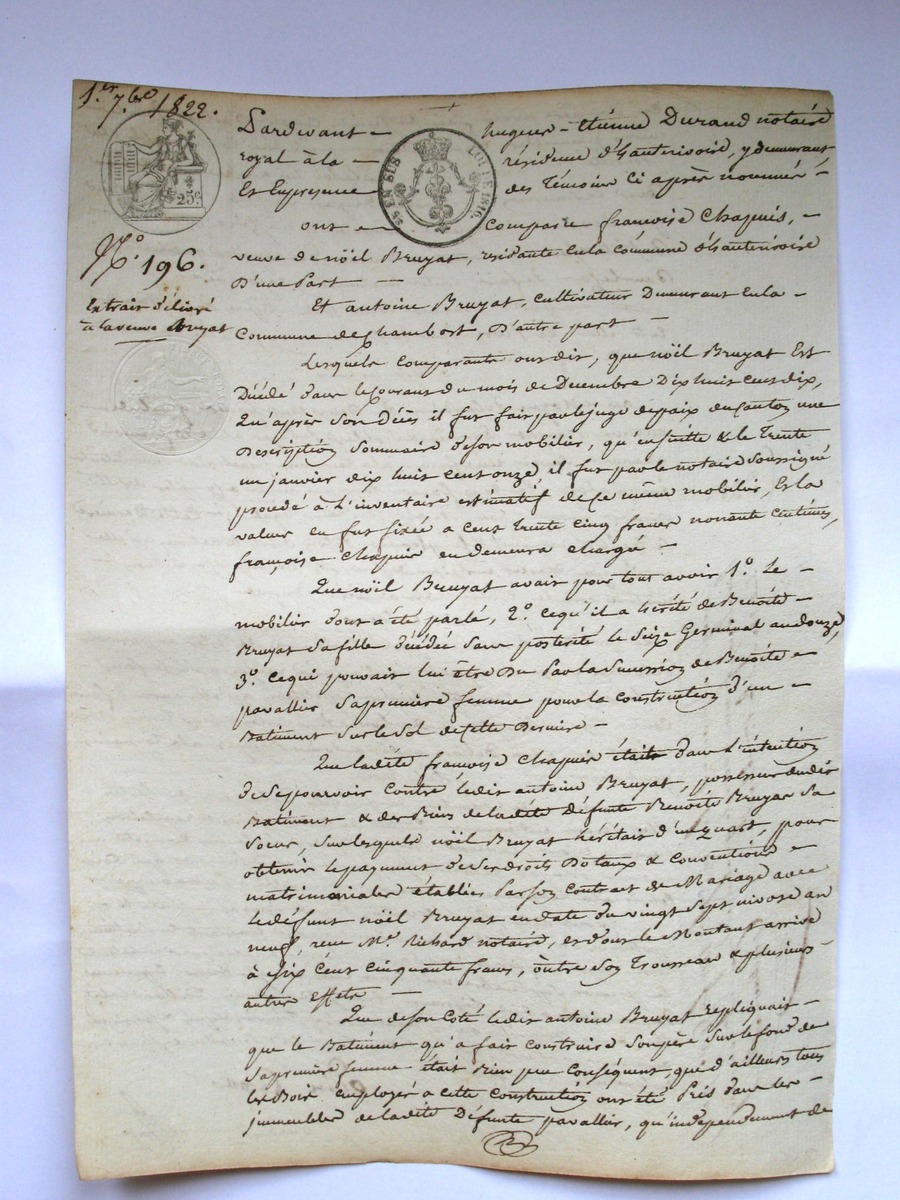 1.er 7.bre 1822.
25c.
N.º 196.
Extrait délivré
à la veuve Bruyat
25 EN SUS LOI DE 1816.
Pardevant hugues-étienne Durand notaire
royal à la résidence d'hauterivoire, y demeurant
Et En presence des témoins ci après nommés -
ont comparu françoise Chapuis, -
veuve de nöël Bruyat, résidante en la commune d'hauterivoire
D'une part -
Et antoine Bruyat, cultivateur Demeurant en la -
Commune de Chambost, D'autre part -
Lesquels comparants ont dit, que nöël Bruyat Est
Décédé dans le courant du mois de Decembre Dix huit cent dix,
Qu'après son Décès il fut fait par le juge de paix du canton une
Description sommaire de son mobilier, qu'ensuitte & le trente
un janvier dix huit cent onze, il fut par le notaire soussigné
procédé à L'inventaire estimatif de ce même mobilier, Et la
valeur en fut fixée a cent trente cinq francs nonante centimes,
françoise Chapuis en demeura chargée -
Que nöël Bruyat avait pour tout avoir 1.º Le -
mobilier dont a été parlé, 2.º ce qu'il a hérité de Benoîte -
Bruyat sa fille décédée sans postérité le seize Germinal an douze,
3.º ce qui pouvait lui être Du Par la succession de Benoîte -
pavallier sa premiere femme pour la construction d'un -
Batiment sur le sol de cette Derniere -
Que ladite françoise Chapuis était dans L'intention
de se pourvoir contre ledit antoine Bruyat, possesseur dudit
Batiment & des Biens de ladite défunte Benoîte Bruyat sa
soeur, sur lesquels nöël Bruyat héritait d'un quart, pour
obtenir le payment de ses droits Dotaux & Conventions -
matrimoniales établies Par son contract de Mariage avec
le défunt nöël Bruyat en date du vingt sept nivose an
neuf, reçu M.e Richard notaire, et dont le Montant arrive
à six cent cinquante francs, outre son Trousseau & plusieurs
autres effets -
Que de son coté ledit antoine Bruyat repliquait -
que le Batiment qu'a fait construire son père sur le fond de
sa premiere femme était Bien peu conséquent, que d'ailleurs tous
les Bois employés a cette Construction ont été Pris dans les -
immeubles de ladite Défunte pavallier, qu'independamment de